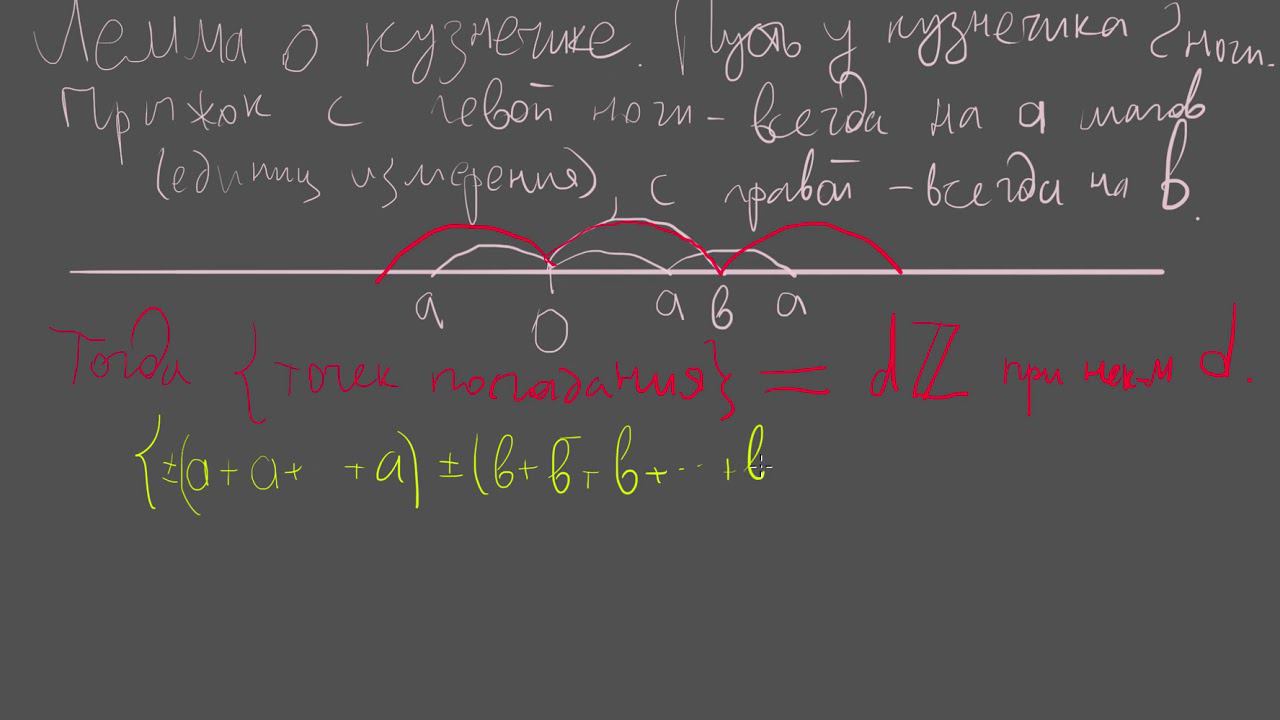 Лемма о кузнечике. Пусть у кузнечика 2 ноги.
Прыжок с левой ноги - всегда на a шагов
(единиц измерения), с правой - всегда на b.
a 0 a b a
Тогда {точек попадания} = dℤ при нек-м d.
{±(a+a+ +a) ±(b+b+b+...+b